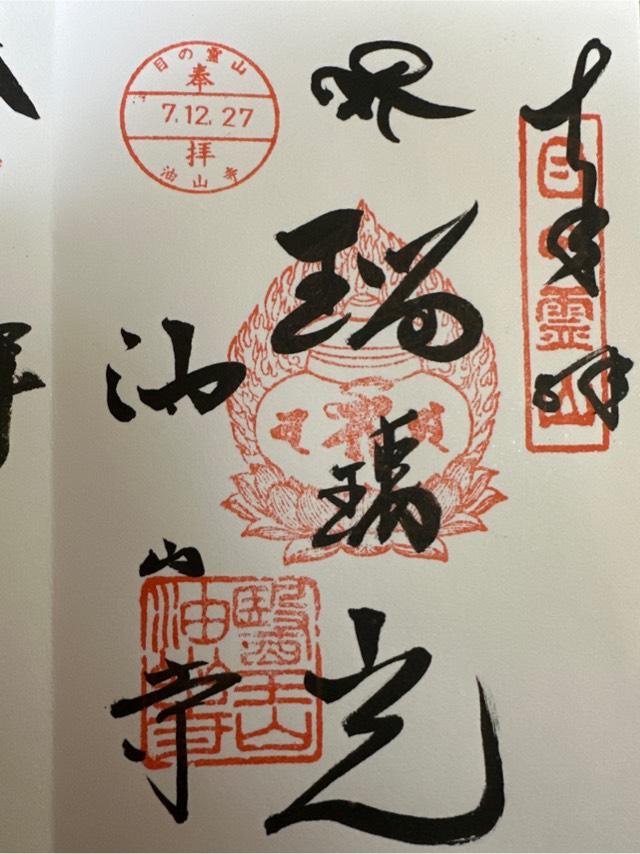 奉拝
目の霊山
瑠璃光
油山寺
目の霊山
奉
7.12.27
拝
油山寺
醫王山
油山寺